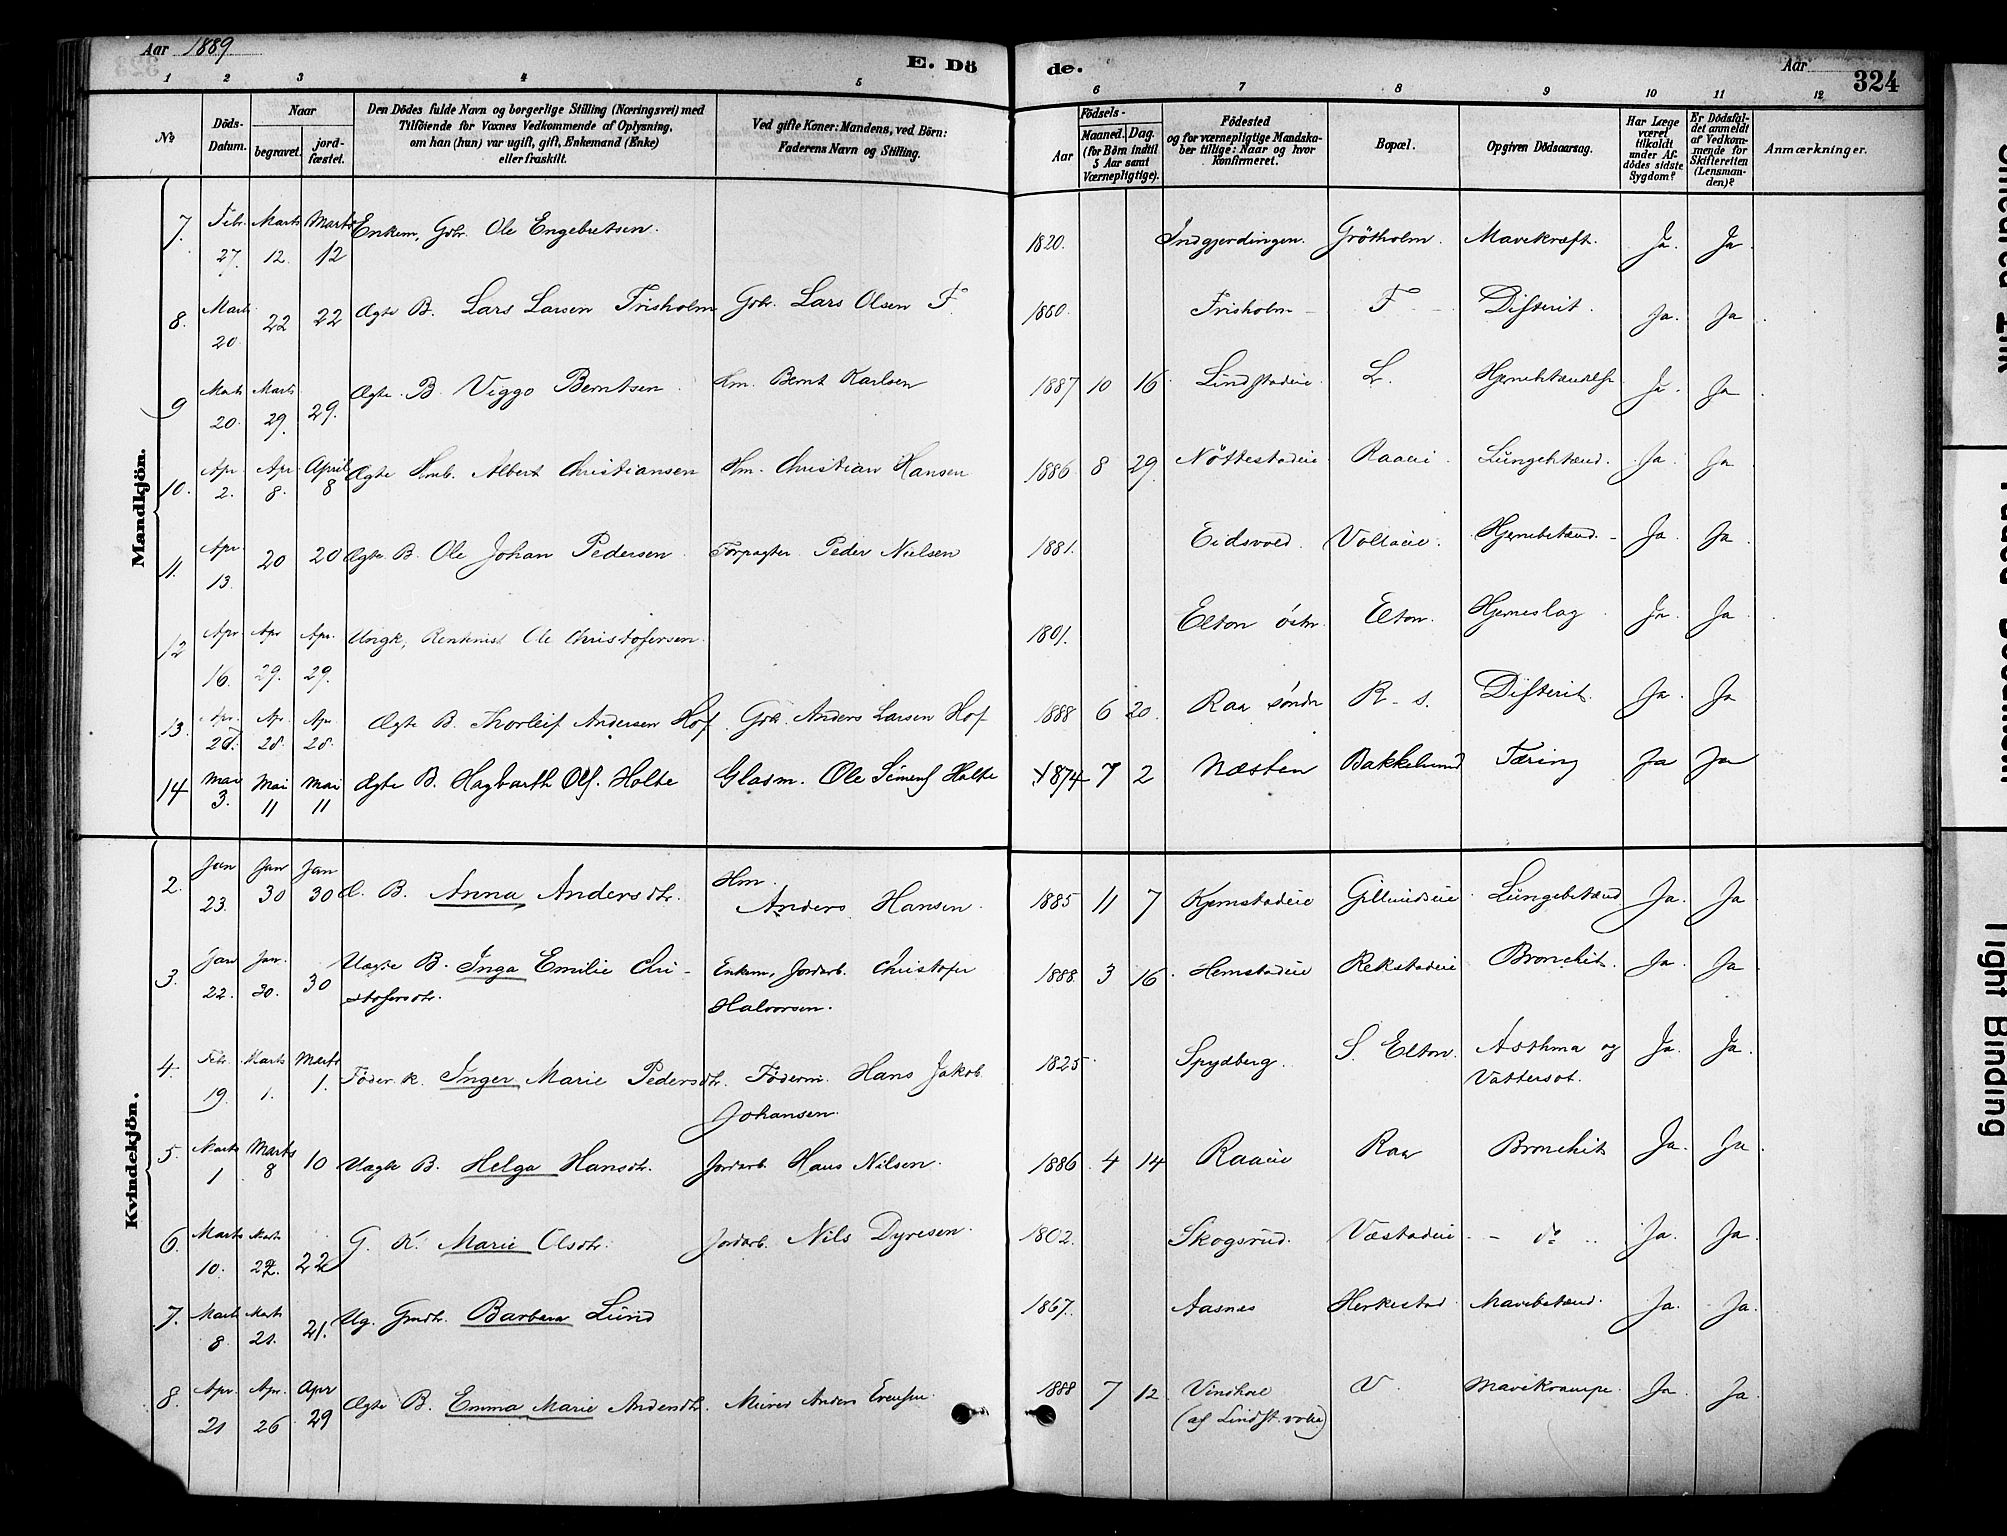 Aar 1889
E. Dö
de.
Aar
324
1 2 3 4 5 6 7 8 9 10 11 12
No
Döds-Datum.
Naar
begravet.
jord-fæstet.
Den Dödes fulde Navn og borgerlige Stilling (Næringsvei) med
Tilföiende for Voxnes Vedkommende af Oplysning,
om han (hun) var ugift, gift, Enkemand (Enke)
eller fraskilt.
Ved gifte Koner: Mandens, ved Börn:
Faderens Navn og Stilling.
Födsels-
Aar
Maaned. Dag.
(for Börn indtil
5 Aar samt
Værnepligtige).
Födested
og for værnepligtige Mandska-
ber tillige: Naar og hvor
Konfirmeret.
Bopæl.
Opgiven Dödsaarsag.
Har Læge
været
tilkaldt
under Af-
dödes sidste
Sygdom?
Er Dödsfal-
det anmeldt
af Vedkom-
mende for
Skifteretten
(Lensman-
den)?
Anmærkninger.
Mandkjön.
7. Febr. 27. Marts 12. Marts 12 Enkem, Gbr. Ole Engebretsen. 1820. Indgjerdingen. Grøtholm. Mavekræft. Ja. Ja
8. Mart. 20. 22 22 Ægte B. Lars Larsen Frisholm Gbr. Lars Olsen F. 1880. Frisholm F Difterit. Ja. Ja
9 Marts 20. Marts 29. 29. Ægte B. Viggo Berntsen. Hm. Bernt Karlsen 1887 10 16 Lindstadeie L. Ja. Ja
10. Apr. 2. Apr. 8. April 8 Ægte Hmb. Albert Christiansen Hm. Christian Hansen 1886 8 29. Nøttestadeie Raaeie Lungebetænd. Ja. Ja
11. Apr. 13. 20 20 Ægte B. Ole Johan Pedersen. Forpagter Peder Nielsen 1881. Eidsvold. Voldaeie. Hjernebetænd. Ja Ja.
12 Apr. 16. Apr 29. Apr. 29. Ungk, Rentenist Ole Christofersen. 1801. Elton østr. Elton. Hjerneslag. Ja Ja.
13. Apr. 20. Apr. 28. Apr. 28. Ægte B. Thorleif Andersen Hof Gbr. Anders Larsen Hof 1888 6 20. Raa søndr R. s. Difterit. Ja. Ja
14 Mai 3. Mai 11 Mai 11 Ægte B. Hagbarth Ols. Holte Glasm. Ole Simens Holte 1874 7 2 Næsten Bakkelund Tæring Ja Ja
Kvindekjön.
2. Jan 23. Jan 30 Jan 30 Æ. B. Anna Andersdtr. Hm.
Anders Hansen. 1885 11 7 Kjernstadeie Gillundseie Lungebetænd Ja. Ja
3. Jan 22. Jan. 30. 30 Uægte B. Inga Emilie Chri-
stofersdtr. Enkem, Jordarb. Christofer
Halvorsen. 1888. 3 16. Hemstadeie Rekstadeie Bronchit. Ja. Ja
4. Febr. 19. Marts 1. Marts 1. Føder.k. Inger Marie Pedersdtr.Føderm. Hans Jakob
Johansen. 1825 Spydberg. S. Elton. Asthma og
Vattersot. Ja. Ja.
5. Marts 1 Marts 8 10 Uægte B. Helga Hansdtr. Jordarb. Hans Nilsen. 1886 4 14 Raaeie Raa Bronchit Ja. Ja.
6. Marts 10. Mart. 22. 22 G. K. Marie Olsdtr. Jordarb. Nils Dyresen. 1802. Skogsrud. Væstadeie - do Ja. Ja.
7. Marts 8 Marts 21. 21. Ug. Gmdtr. Barbara Lund 1867. Aasnes Herkestad Mavebetænd. Ja. Ja.
8. Apr. 21 Apr. 26 Apr 29 Ægte B. Emma Marie Andersdtr. Murer Anders Evensen. 1888 7 12 V Mavekrampe. Ja. Ja.
Tight Binding